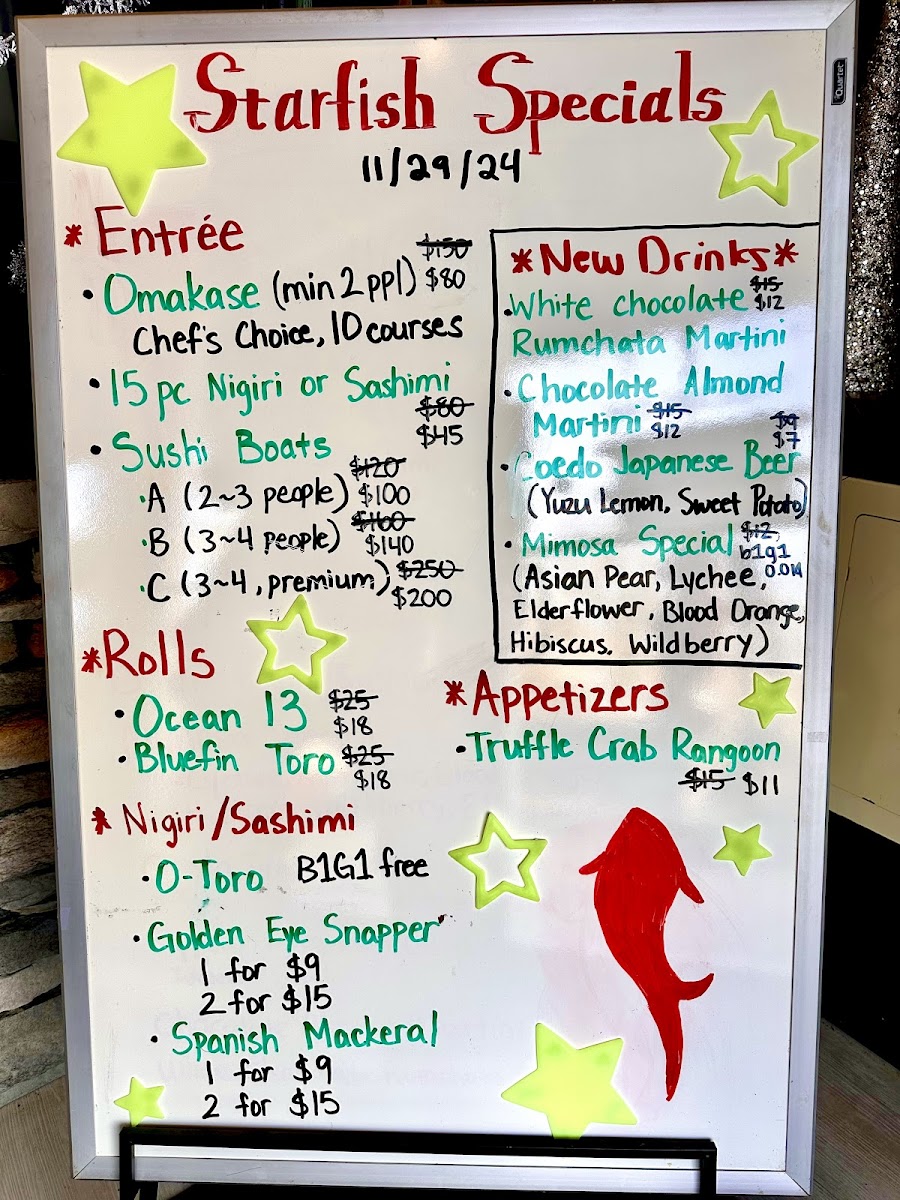 Quartet
Starfish Specials
11/29/24
* Entrée
$150
• Omakase (min 2 ppl) $80
Chef's Choice, 10 courses
• 15 pc Nigiri or Sashimi
$80
$45
• Sushi Boats
$120
• A (2~3 people) $100
$160
• B (3~4 people) $140
• C (3~4, premium) $250
$200
* New Drinks *
$15
• White chocolate $12
Rumchata Martini
• Chocolate Almond
Martini $15
$12
$9
$7
• Coedo Japanese Beer
(Yuzu Lemon, Sweet Potato)
• Mimosa Special $12
b1g1
(Asian Pear, Lychee, 0.01¢
Elderflower, Blood Orange,
Hibiscus, Wildberry)
* Rolls
• Ocean 13 $25
$18
• Bluefin Toro $25
$18
* Appetizers
• Truffle Crab Rangoon
$15 $11
* Nigiri/Sashimi
• O-Toro B1G1 free
• Golden Eye Snapper
1 for $9
2 for $15
• Spanish Mackeral
1 for $9
2 for $15